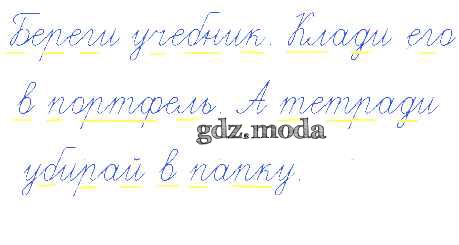 Береги учебник. Клади его
в портфель. А тетради
gdz.moda
убирай в папку.